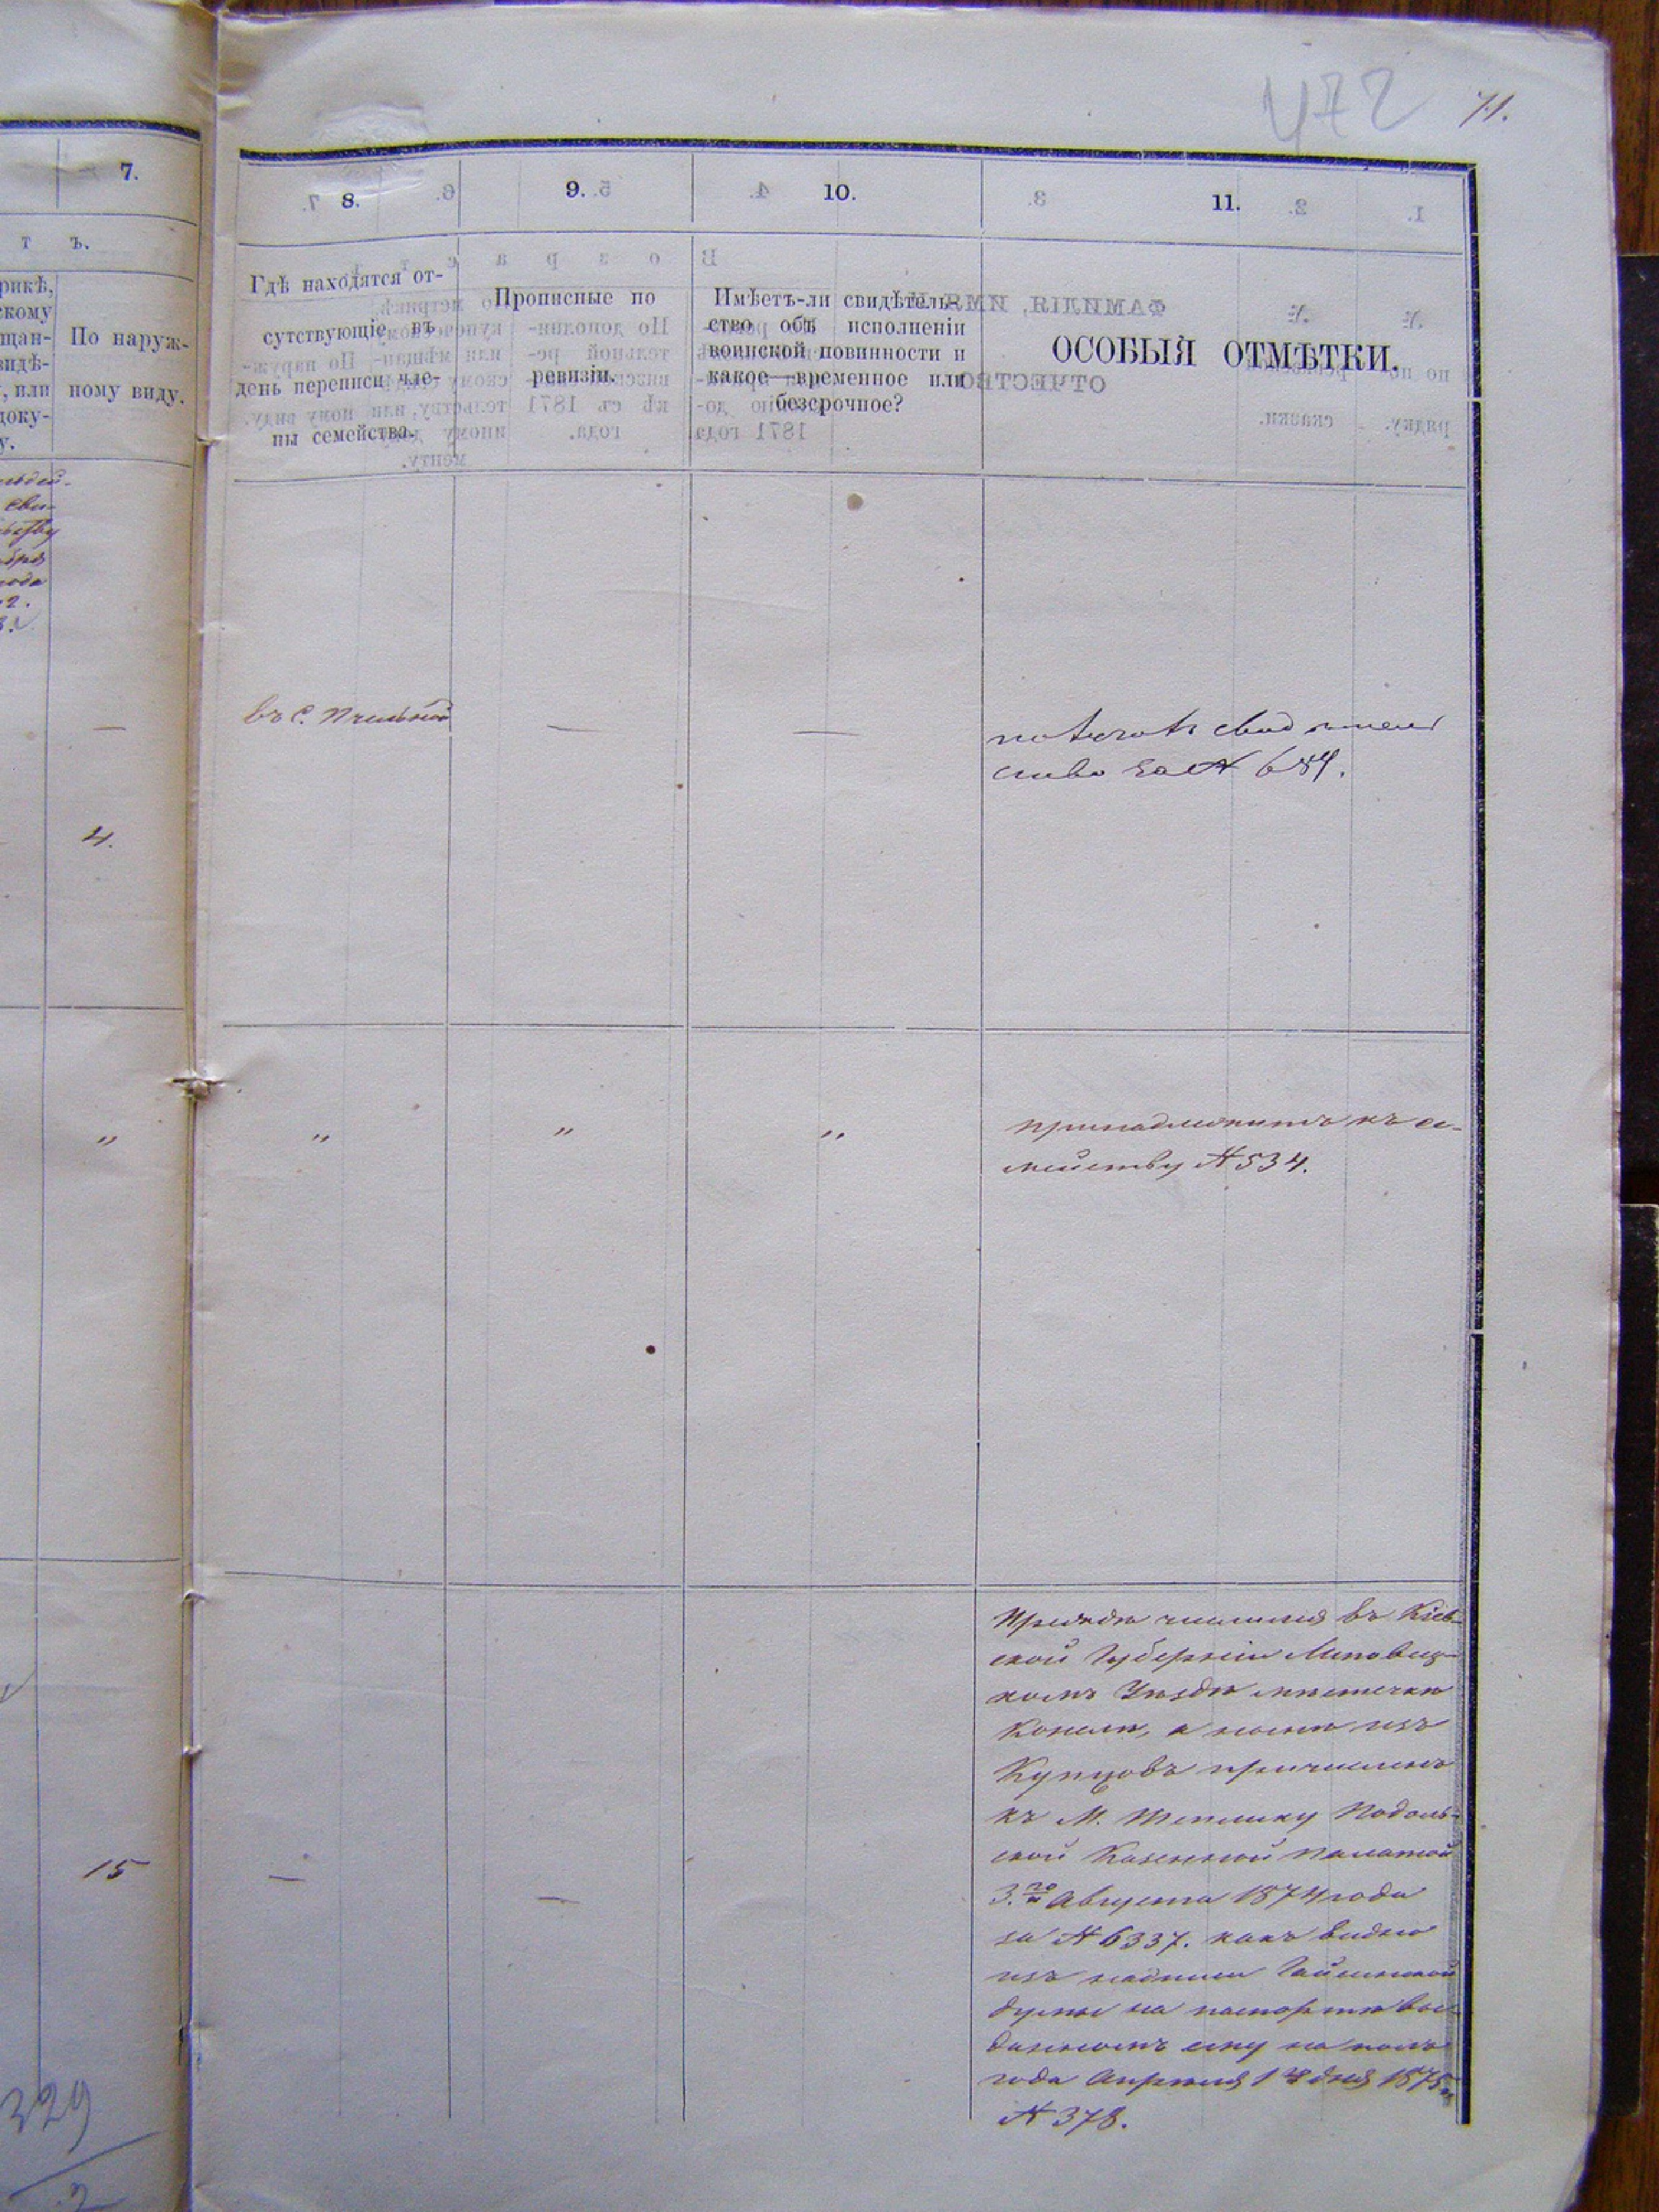 472 71.
7.
т ъ.
рикѣ,
скому
щан-
видѣ-
, или
доку-
у.
По наруж-
ному виду.
8. 9. 10. 11.
Гдѣ находятся от-
сутствующіе въ
день переписи чле-
ны семейства.
Прописные по
ревизіи.
Имѣетъ-ли свидѣтель-
ство объ исполненіи
воинской повинности и
какое—временное или
безсрочное?
ОСОБЫЯ ОТМѢТКИ.
— въ С. — —
за № 684.
4.
" " " " принадлежитъ къ се-
мейству № 534.
Прежде числился въ Кіев-
ской Губерніи Липовец-
комъ Уѣздѣ мѣстечкѣ
Конелѣ, а нынѣ изъ
Купцовъ причисленъ
къ М. Теплику Подоль-
ской Казенной Палатой
3.го Августа 1874 года
за № 6337. какъ видно
изъ надписи Гайсинской
думы на паспортѣ вы-
данномъ ему на полъ
года Апрѣля 14 дня 1875
№ 378.
15 — —
329
2